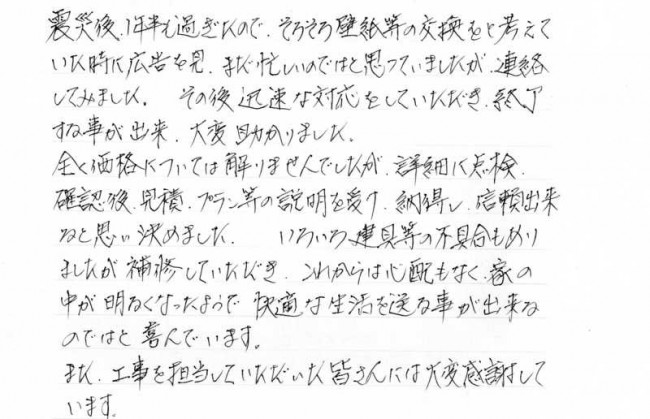 震災後、1年半も過ぎたので、そろそろ壁紙等の交換をと考えて
いた時に広告を見、まだ忙しいのではと思っていましたが、連絡
してみました。 その後迅速な対応をしていただき、終了
する事が出来、大変助かりました。
全く価格については解りませんでしたが、詳細に点検、
確認後、見積、プラン等の説明を受け、納得し、信頼出来
ると思い決めました。 いろいろ建具等の不具合もあり
ましたが補修していただき、これからは心配もなく、家の
中が明るくなったようで快適な生活を送る事が出来る
のではと喜んでいます。
また、工事を担当していただいた皆さんには大変感謝して
います。